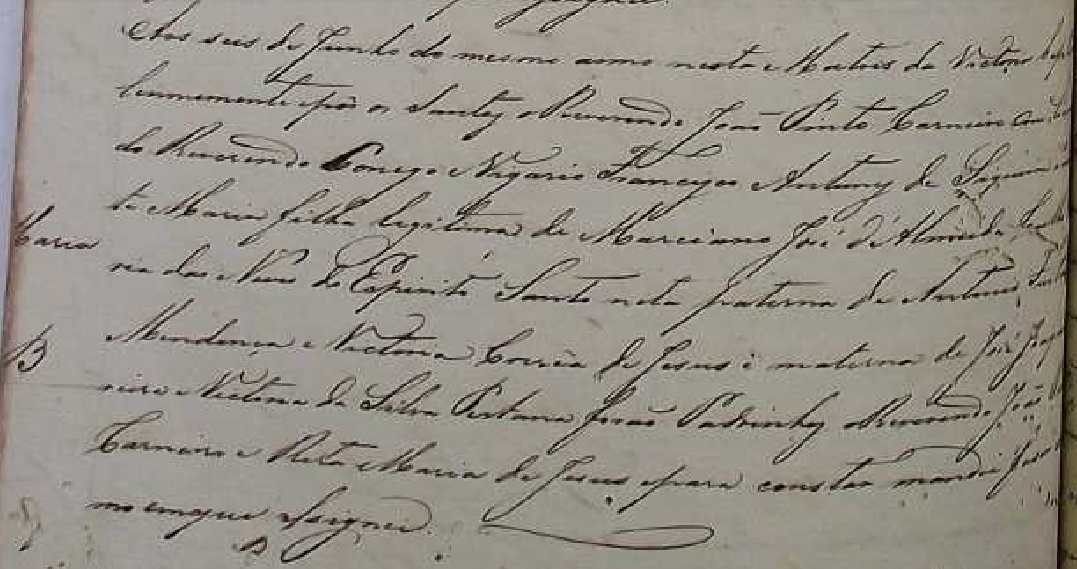 Aos seis de Junho do mesmo anno nesta Matris da Victoria
lemnemente pôs os Santos o Reverendo João Pinto Carneiro com
do Reverendo Conego Vigario Francisco Antunes de Siqueira
te Maria filha legitima de Marciano José d'Almeida
Maria
ria das Neves do Espirito Santo neta paterna de Antonio
B
Mendonça e Victoria Corrêa de Jesus e materna de José
neiro e Victoria da Silva Pestana forão Padrinhos o Reverendo João
Carneiro e Rita Maria de Jesus e para constar mandei
mo em que assignei.